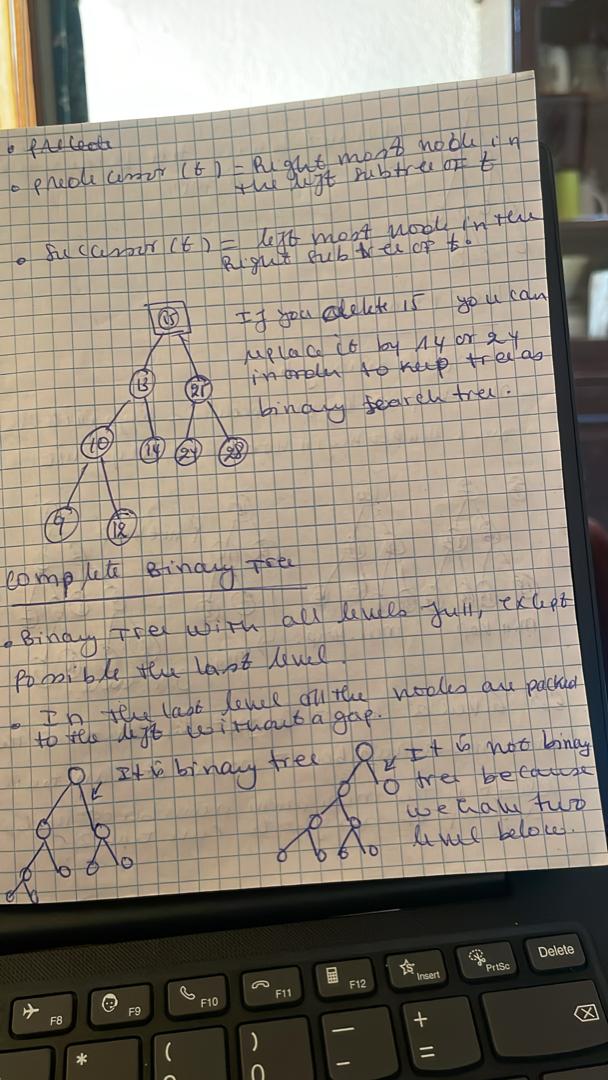 • predece
• predecessor (t) = Right most node in
the left subtree of t
• Successor (t) = left most node in the
Right subtree of t.
15
If you delete 15 you can
replace it by 14 or 24
in order to keep tree as
binary search tree.
13
10
14
24
28
9
12
Complete Binary Tree
• Binary Tree with all levels full, except
Possible the last level.
• In the last level all the nodes are packed
to the left without a gap.
It is binary tree
It is not binary
tree because
we have two
level below.
F8
F9
F10
F11
F12
Insert
PrtSc
Delete
*
(
)
0
—
-
+
=